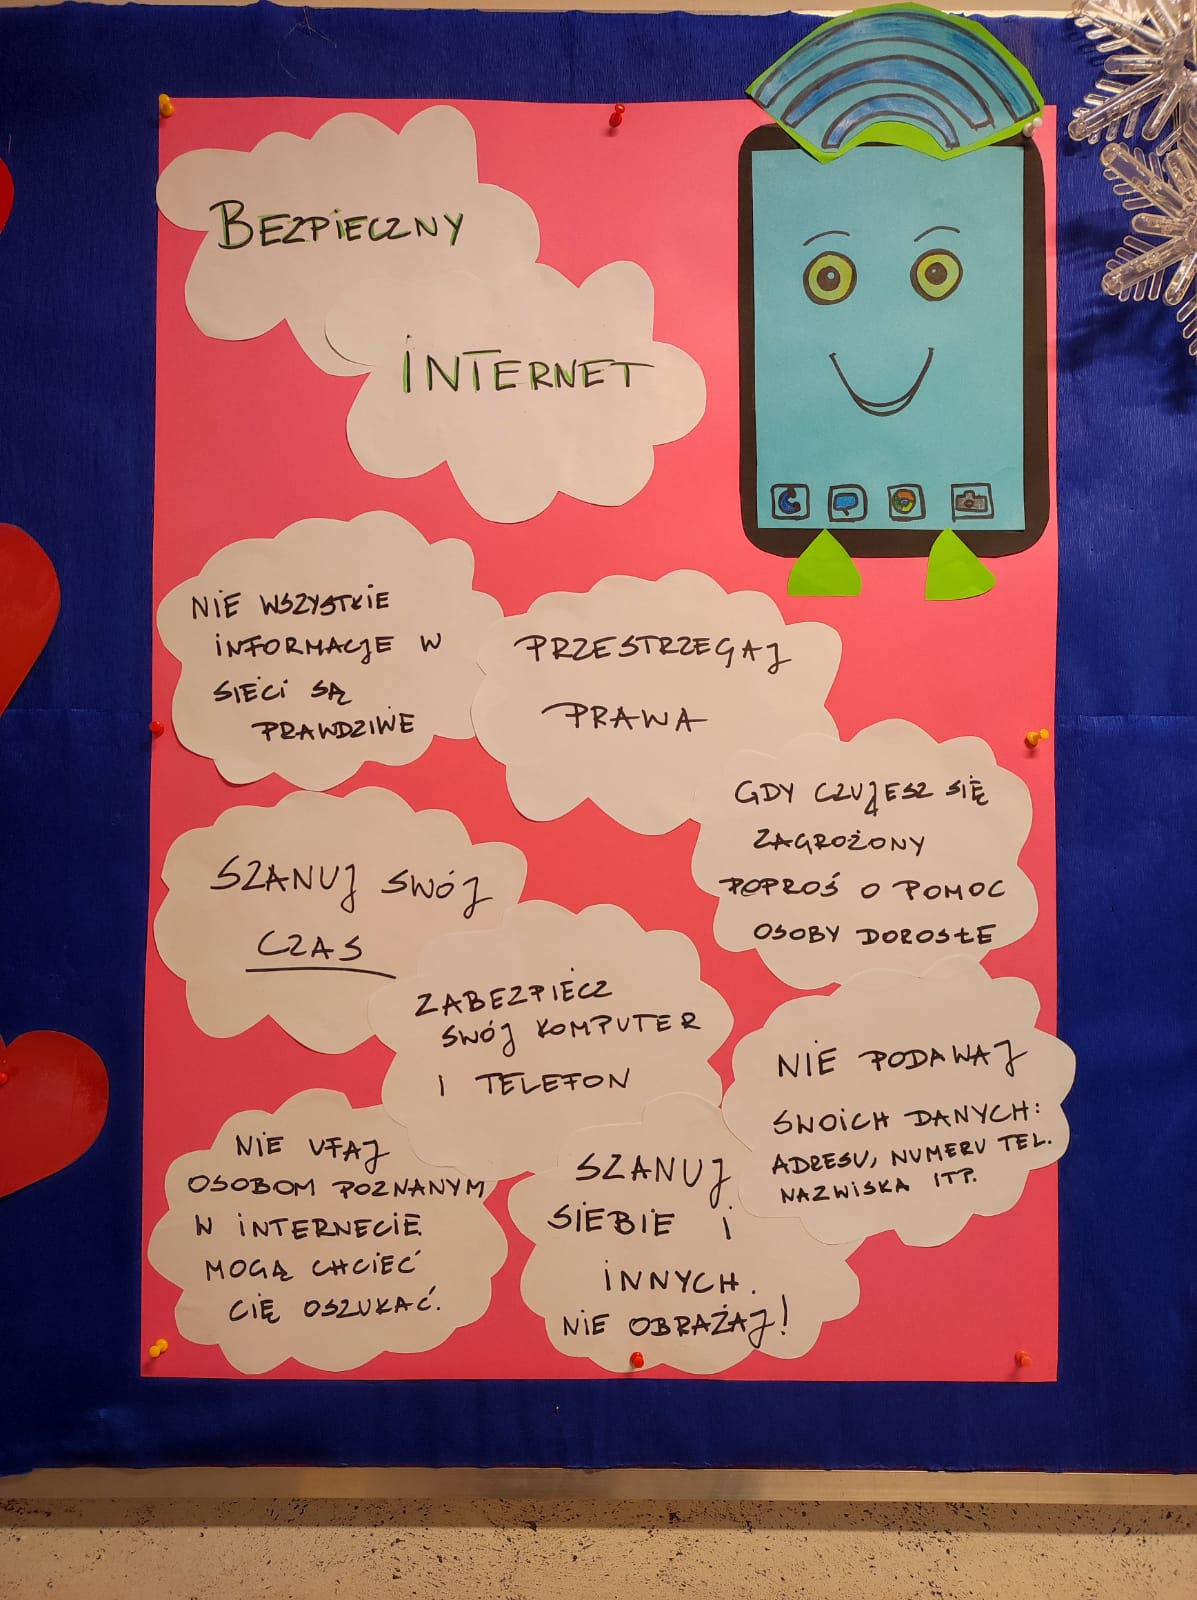 BEZPIECZNY
INTERNET
NIE WSZYSTKIE
INFORMACJE W
SIECI SĄ
PRAWDZIWE
PRZESTRZEGAJ
PRAWA
GDY CZUJESZ SIĘ
ZAGROŻONY
POPROŚ O POMOC
OSOBY DOROSŁE
SZANUJ SWÓJ
CZAS
ZABEZPIECZ
SWÓJ KOMPUTER
I TELEFON
NIE PODAWAJ
SWOICH DANYCH:
ADRESU, NUMERU TEL.
NAZWISKA ITP.
NIE UFAJ
OSOBOM POZNANYM
W INTERNECIE
MOGĄ CHCIEĆ
CIĘ OSZUKAĆ.
SZANUJ
SIEBIE I
INNYCH.
NIE OBRAŻAJ!